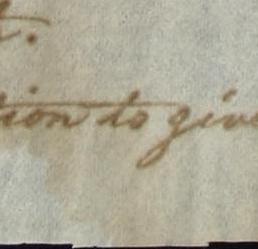 t.
tion to give